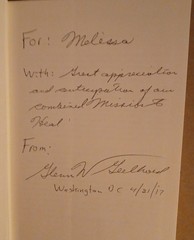 For: Melissa
With: Great appreciation
and anticipation of our
combined Mission to
Heal!
From:
Glenn W Geelhoed
Washington DC 4/21/17